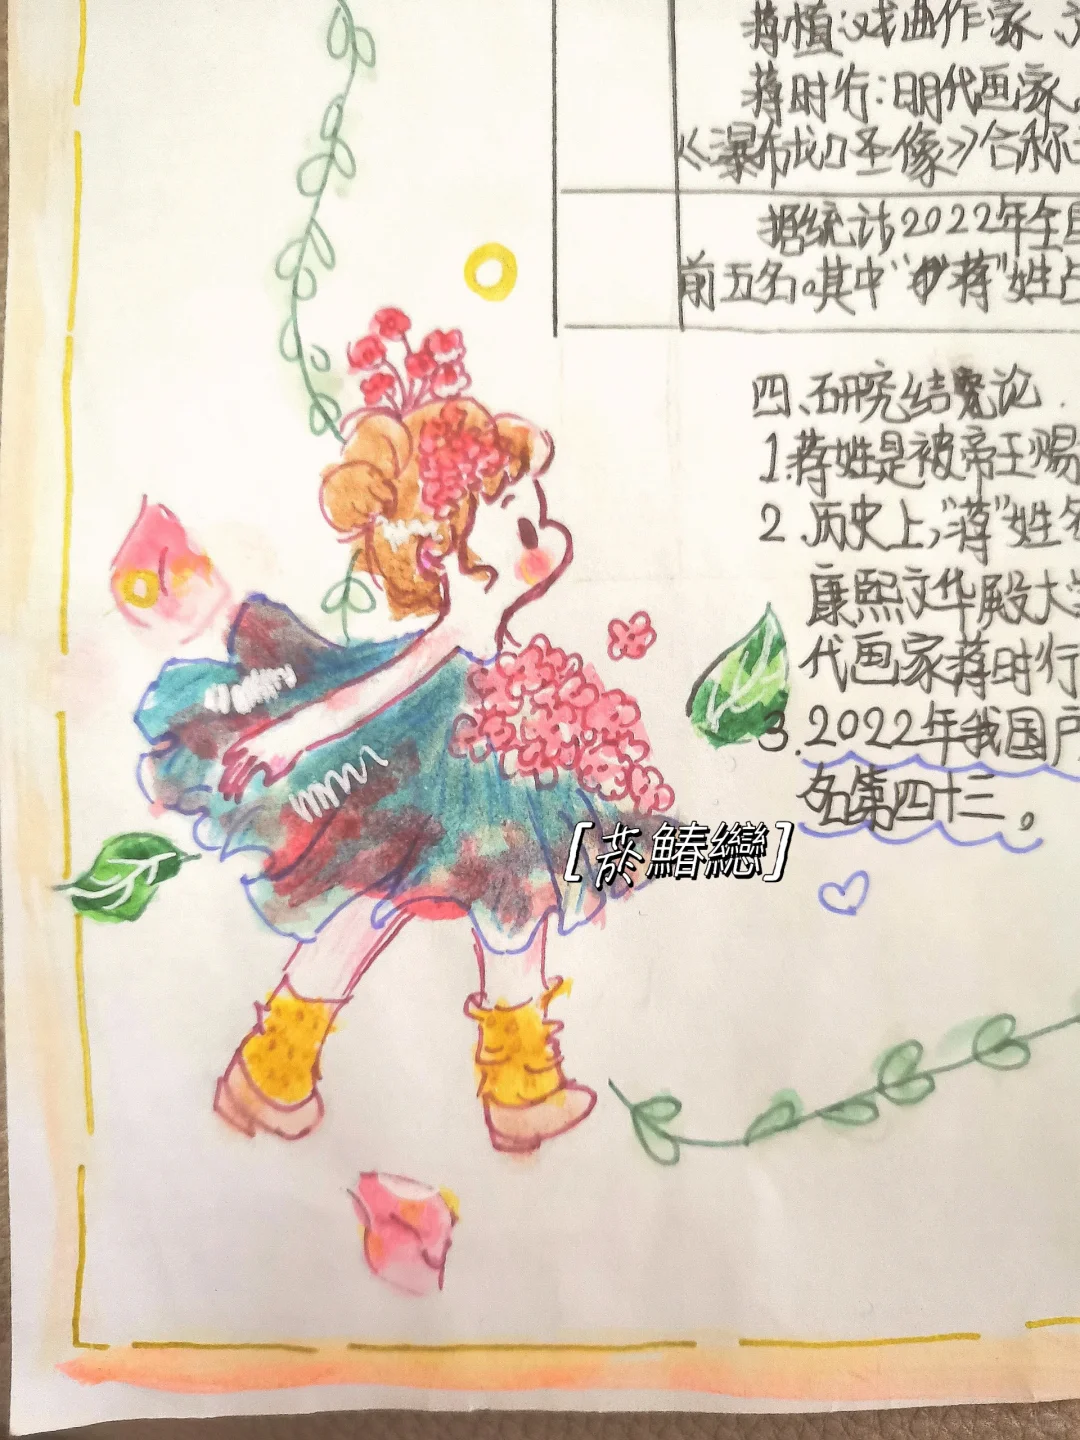 蒋慎：戏曲作家、
蒋时行：明代画家
《瀑布龙口圣像》合称
据统计2022年全国
前五名。其中“蒋”姓占
四、研究结论
1.蒋姓是被帝王赐
2.历史上，“蒋”姓名
康熙文华殿大学
代画家蒋时行
3.2022年我国户
名第四十三。
[菸鰆戀]